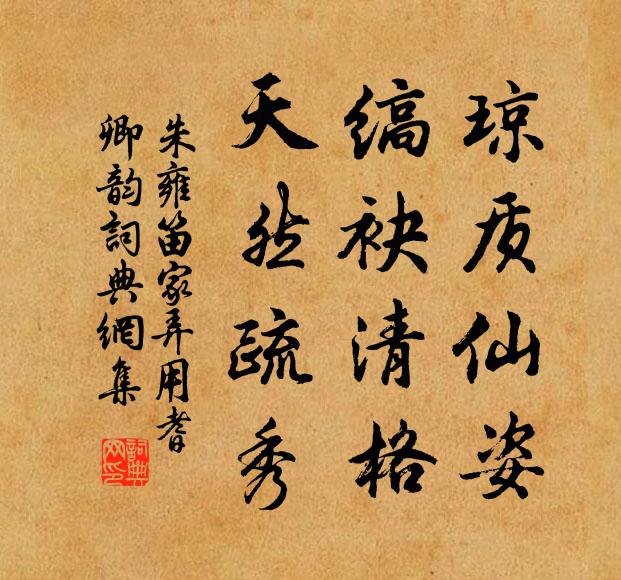 琼质仙姿
缟袂清格
天然疏秀
朱雍笛家弄用耆
卿韵詞典網集
詞典网印